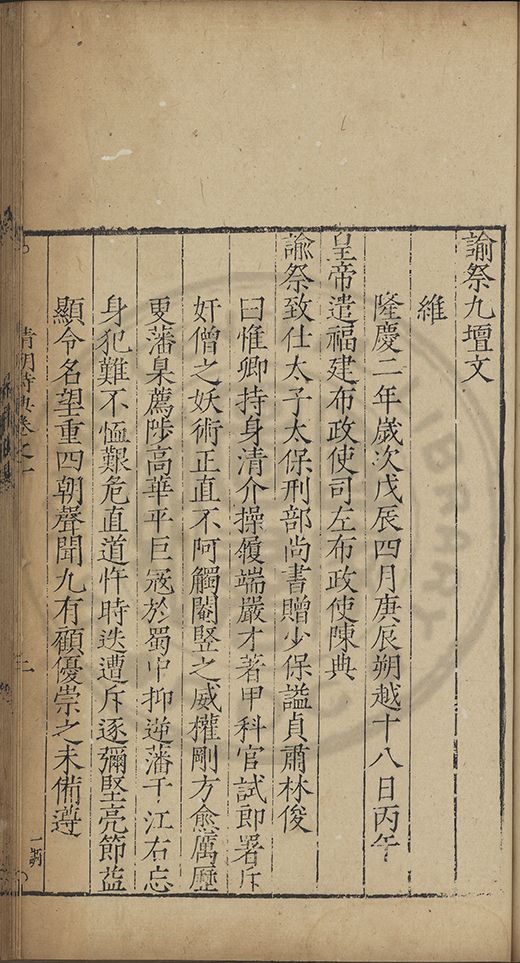 諭祭九壇文
維
隆慶二年歲次戊辰四月庚辰朔越十八日丙午
皇帝遣福建布政使司左布政使陳典
諭祭致仕太子太保刑部尚書贈少保謚貞肅林俊
曰惟卿持身清介操履端嚴才著甲科官試郎署斥
奸僧之妖術正直不阿觸閹竪之威權剛方愈厲歷
更藩臬薦陟高華平巨寇於蜀中抑逆藩于江右忘
身犯難不恤艱危直道忤時迭遭斥逐彌堅亮節益
顯令名望重四朝聲聞九有顧優崇之未備遵
卷之一
二